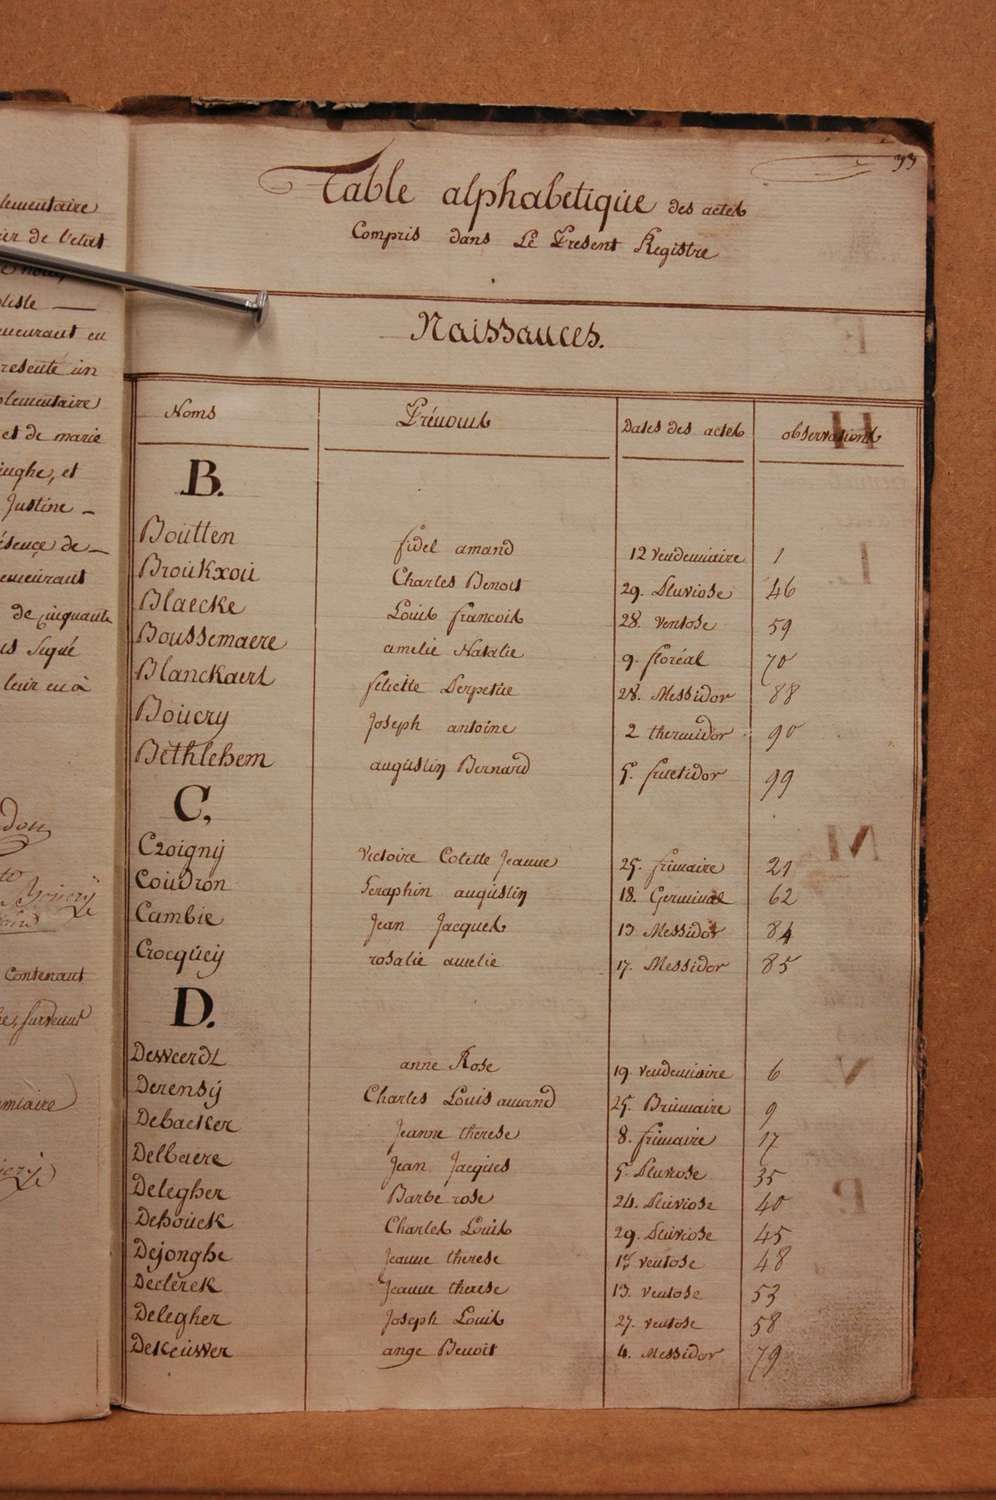 33
Table alphabetique des actes
Compris dans Le Present Registre
Naissances.
Noms Prénoms Dates des actes observations
B.
Boutten fidel amand 12 vendemiaire 1
Broukxou Charles Benoit 29. Pluviose 46
Blaecke Louis francois 28. ventose 59
Boussemaere amelie Natalie 9. floréal 70
Blanckaert felicitte Perpetue 28. Messidor 88
Bouery Joseph antoine 2 thermidor 90
Bethlehem augustin Bernard 5. fructidor 99
C,
Czoigny victoire Colette Jeanne 25. frimaire 21
Coudron Seraphin augustin 18. Germinal 62
Cambie Jean Jacques 13 Messidor 84
Crocquey rosalie amelie 17. Messidor 85
D.
Deweerdt anne Rose 19. vendemiaire 6
Derensy Charles Louis amand 25. Brumaire 9
Debacker Jeanne therese 8. frimaire 17
Delbaere Jean Jacques 5. Pluviose 35
Delegher Barbe rose 24. Pluviose 40
Dehouck Charles Louis 29. Pluviose 45
Dejonghe Jeanne therese 1er ventose 48
Declerck Jeanne therese 13. ventose 53
Delegher Joseph Louis 27. ventose 58
Dekeuwer ange Benoit 4. Messidor 79
lementaire
de l'etat
meurant en
presenté un
plementaire
et de marie
inghe, et
Justine
ésence de
emeurant
de cinquante
us Signé
leur en à
contenant
miaire